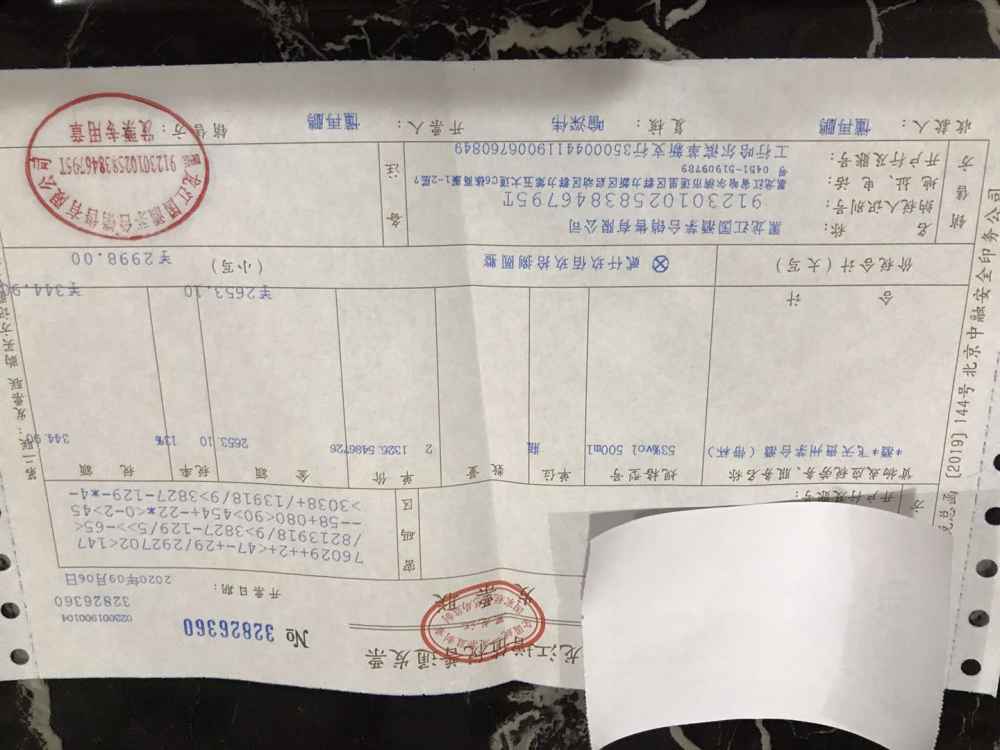 龙江增值税普通发票
发票联
№ 32826360
023001900104
32826360
开票日期： 2020年09月06日
密码区
76029++2+<47-+29/292702<147
/8213918/9>3827-129/5>>-65<
--58+080<90>454+-22*0<0-2>45
>3038+/13918/9>3827-129-*4-
开户行及账号：
货物或应税劳务、服务名称 规格型号 单位 数量 单价 金额 税率 税额
*酒*飞天贵州茅台酒（带杯） 53%vol 500ml 瓶 2 1326.5486726 2653.10 13% 344.90
合计 ￥2653.10 ￥344.90
价税合计（大写） ⊗ 贰仟玖佰玖拾捌圆整 （小写） ￥2998.00
销售方
名称： 黑龙江国酒茅台销售有限公司
纳税人识别号： 91230102583846795T
地址、电话： 0451-51909789
开户行及账号： 工行哈尔滨革新支行3500044119006760849
备注
收款人： 懂再鹏 复核： 喻深伟 开票人： 懂再鹏 销售方：
黑龙江国酒茅台销售有限公司
91230102583846795T
发票专用章
〔2019〕144号北京中融安全印务公司
第二联：发票联 购买方记